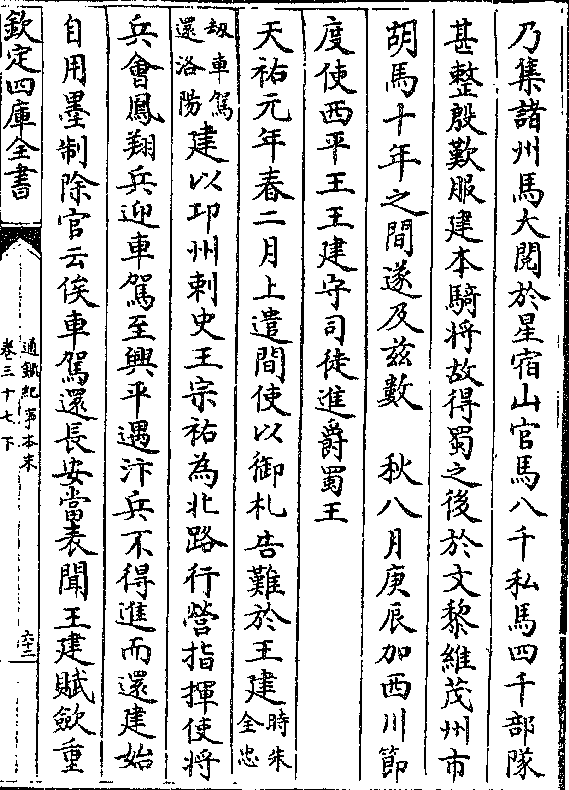 乃集諸州馬大閱於星宿山官馬八千私馬四千部隊
甚整殷歎服建本騎將故得蜀之後於文黎維茂州市
胡馬十年之間遂及兹數　秋八月庚辰加西川節
度使西平王王建守司徒進爵蜀王
天祐元年春二月上遣間使以御札告難於王建時朱全忠
劫車駕還洛陽建以邛州刺史王宗祐為北路行營指揮使將
兵會鳳翔兵迎車駕至興平遇汴兵不得進而還建始
自用墨制除官云俟車駕還長安當表聞王建賦斂重
欽定四庫全書
通鑑紀事本末
卷三十七下
六十三